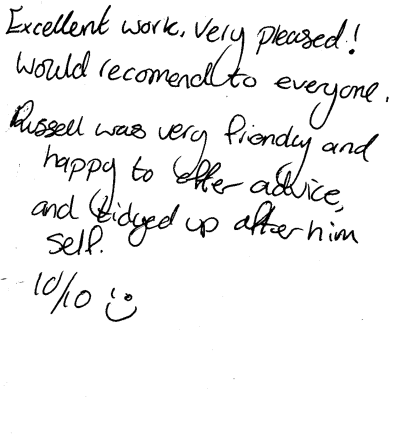 Excellent work. Very pleased!
Would recomend to everyone.
Russell was very friendly and
happy to offer advice,
and tidyed up after him
self.
10/10 :)